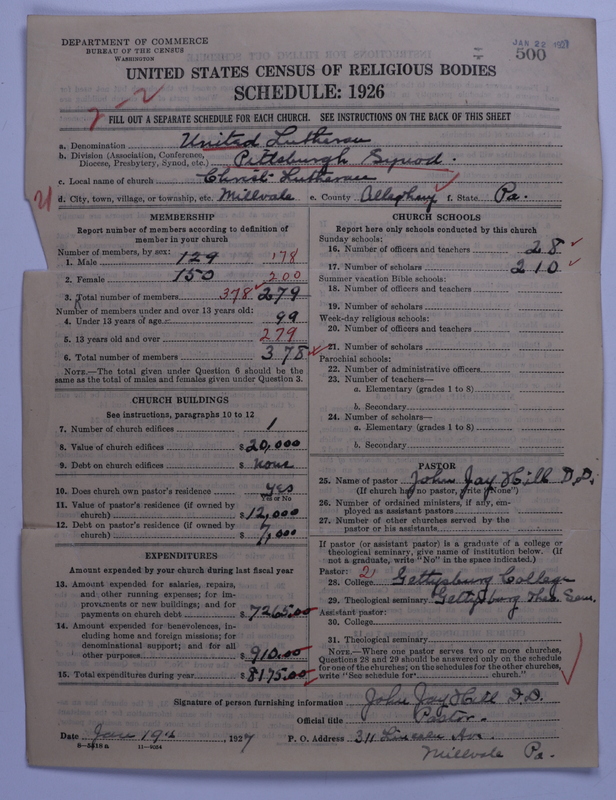 DEPARTMENT OF COMMERCE
BUREAU OF THE CENSUS
WASHINGTON
JAN 22 1927
500
UNITED STATES CENSUS OF RELIGIOUS BODIES
SCHEDULE: 1926
FILL OUT A SEPARATE SCHEDULE FOR EACH CHURCH. SEE INSTRUCTIONS ON THE BACK OF THIS SHEET
a. Denomination United Lutheran
b. Division (Association, Conference, Diocese, Presbytery, Synod, etc.) Pittsburgh Synod.
c. Local name of church Christ Lutheran
d. City, town, village, or township, etc. Millvale e. County Allegheny f. State Pa.
MEMBERSHIP
Report number of members according to definition of
member in your church
Number of members, by sex:
1. Male 129 178
2. Female 150 200
3. Total number of members 378 279
Number of members under and over 13 years old:
4. Under 13 years of age 99
5. 13 years old and over 279
6. Total number of members 378
NOTE.—The total given under Question 6 should be the
same as the total of males and females given under Question 3.
CHURCH BUILDINGS
See instructions, paragraphs 10 to 12
7. Number of church edifices 1
8. Value of church edifices $20,000
9. Debt on church edifices $ none
10. Does church own pastor's residence yes
Yes or No
11. Value of pastor's residence (if owned by
church) $12,000
12. Debt on pastor's residence (if owned by
church) $7,000
EXPENDITURES
Amount expended by your church during last fiscal year
13. Amount expended for salaries, repairs,
and other running expenses; for im-
provements or new buildings; and for
payments on church debt $7265.00
14. Amount expended for benevolences, in-
cluding home and foreign missions; for
denominational support; and for all
other purposes $910.00
15. Total expenditures during year $8175.00
CHURCH SCHOOLS
Report here only schools conducted by this church
Sunday schools:
16. Number of officers and teachers 28
17. Number of scholars 210
Summer vacation Bible schools:
18. Number of officers and teachers
19. Number of scholars
Week-day religious schools:
20. Number of officers and teachers
21. Number of scholars
Parochial schools:
22. Number of administrative officers
23. Number of teachers—
a. Elementary (grades 1 to 8)
b. Secondary
24. Number of scholars—
a. Elementary (grades 1 to 8)
b. Secondary
PASTOR
25. Name of pastor John Jay Hill D.D.
(If church has no pastor, write "None")
26. Number of ordained ministers, if any, em-
ployed as assistant pastors
27. Number of other churches served by the
pastor or his assistants
If pastor (or assistant pastor) is a graduate of a college or
theological seminary, give name of institution below. (If
not a graduate, write "No" in the space indicated.)
Pastor: 2
28. College Gettysburg College
29. Theological seminary Gettysburg Theo. Sem.
Assistant pastor:
30. College
31. Theological seminary
NOTE.—Where one pastor serves two or more churches,
Questions 28 and 29 should be answered only on the schedule
for one of the churches; on the schedules for the other churches,
write "See schedule for church."
Signature of person furnishing information John Jay Hill D.D.
Official title Pastor.
Date Jan 19th, 1927 P. O. Address 311 Lincoln Ave
Millvale Pa.
8-5518a 11-9034